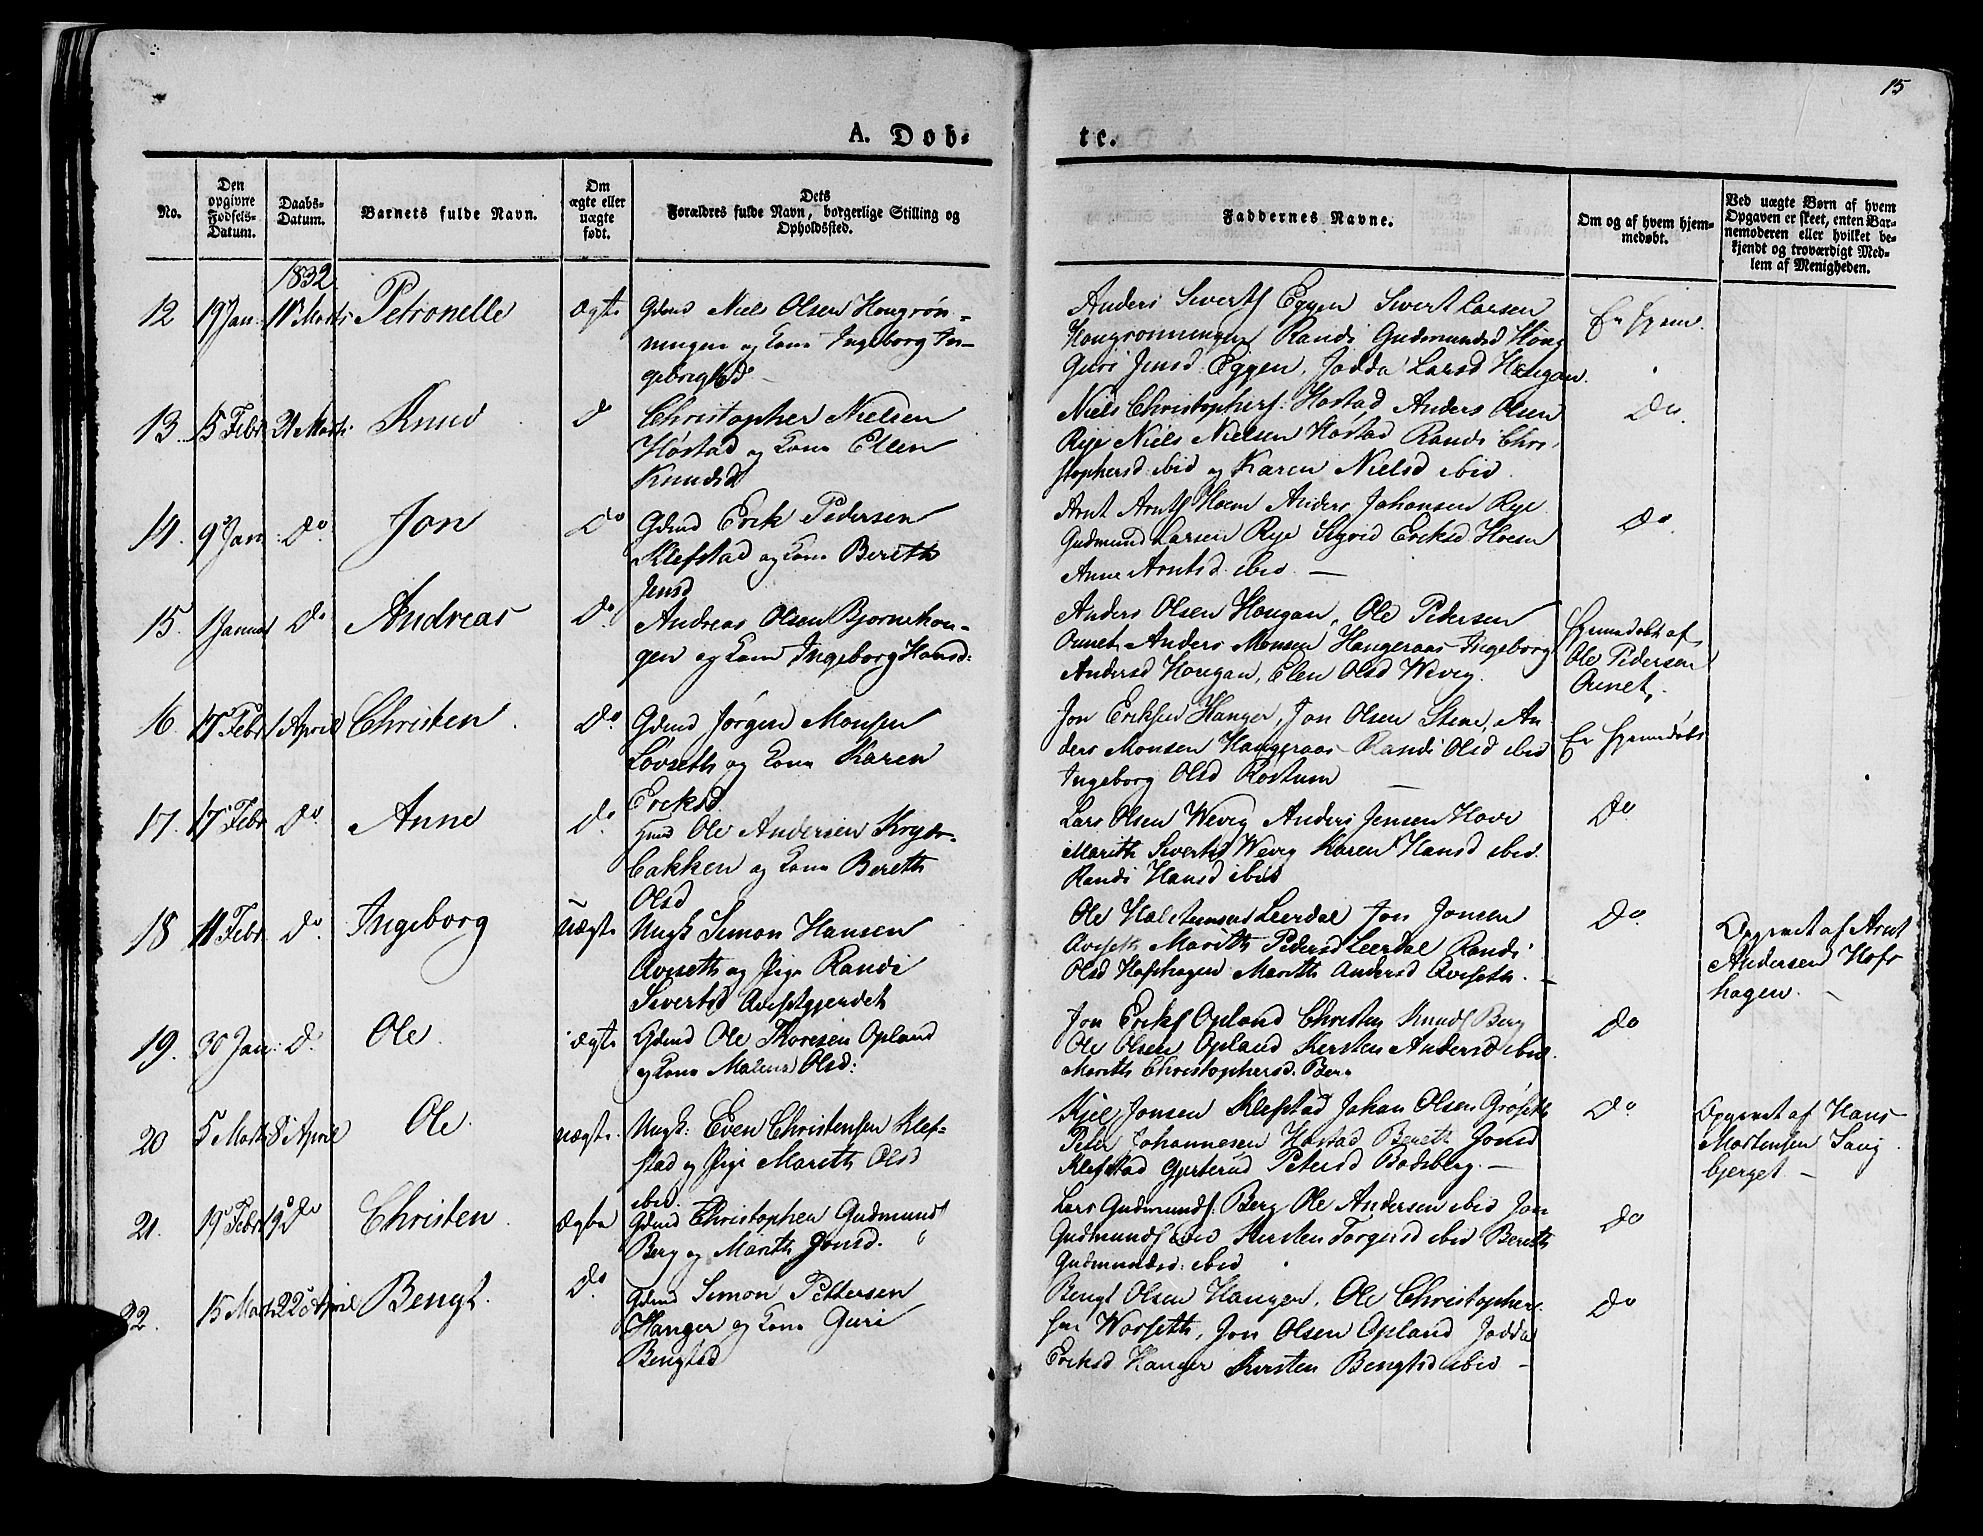 15
A. Døb-
te.
No.
Den opgivne Fødsels-Datum.
Daabs-Datum.
Barnets fulde Navn.
Om ægte eller uægte født.
Dets Forældres fulde Navn, borgerlige Stilling og Opholdsted.
Faddernes Navne.
Om og af hvem hjem-medøbt.
Ved uægte Børn af hvem Opgaven er skeet, enten Bar-nemoderen eller hvilket be-kjendt og troværdigt Med-lem af Menigheden.
1832
12 19 Jan: 18 Marts Petronelle ægte Gdmd Niels Olsen Hougrøn-
ningen og Kone Ingeborg In-
gebrigtsd
Anders Siverts Eggen Sivert Larsen
Hougrønningen Randi Gudmundsd Houg
Guri Jensd Eggen, Jodda Larsd Hougan.
Er hjem.
13 15 Febr 21 Marts Knud do Christopher Nielsen
Hostad og Kone Ellen
Knudsd
Niels Christophers: Hostad Anders Olsen
Rye Niels Nielsen Hostad Randi Chri-
stophersd ibid og Karen Nielsd ibid.
Do.
14. 9 Jan: Do. Jon Do Gdmd Erik Pedersen
Klefstad og Kone Bereth
Jensd
Arnt Arnts Hoem Anders Johansen Rye
Gudmund Larsen Rye Sigrid Eriksd Hoem
Anne Arntsd. ibid. —
Do.
15. 1 Januar Do Andreas Do. Andreas Olsen Bjørnehou-
gen og Kone Ingeborg Hansd:
Anders Olsen Hougan, Ole Pedersen
Ounet, Anders Monsen Hangeraas Ingeborg
Andersd Hougan, Elen Olsd Wevig.
Hjemmedøbt af
Ole Pedersen
Ounet.
16. 17 Febr 1 April Christen. Do. Gdmd Jørgen Monsen
Lovseth og Kone Karen
Eriksd.
Jon Eriksen Hanger, Jon Olsen Stene, An
ders Monsen Hangeraas Randi Olsd ibid
Ingeborg Olsd Rostum —
Er hjemdøbt
17. 17 Febr Do. Anne Do. Hmd Ole Andersen Krys-
bakken og Kone Bereth
Olsd
Lars Olsen Wevig Anders Jensen Hove
Marith Sivertsd Wevig Karen Hansd ibid.
Randi Hansd ibid
Do
18 11 Febr. Do. Ingeborg uægte Ungk Simon Hansen
Aviseth og Pige Randi
Sivertsd Avisetgjerdet
Leerdal Jon Jonsen
Aviseth Marith Pedersd Leerdal Randi
Olsd Hofshagen Marith Andersd Aviseth. —
Do
Opgivet af Arnt
Andersen Hofs
hagen. —
19. 30 Jan: Do. Ole. ægte Gdmd Ole Thoresen Opland
og Kone Malena Olsd:
Jon Eriks Opland Christen Knuds Berg
Ole Olsen Opland Kersten Andersd ibid.
Marith Christophersd. Berg
Do
20 5 Marts 8 April Ole. uægte. Ungk: Even Christensen Klef-
stad og Pige Marith Olsd
ibid.
Kjel Jonsen Klefstad Johan Olsen Grøseth
Peter Johannesen Hostad Bereth Jonsd
Klefstad Gjertrud Petersd Bodsberg. —
Do
Opgivet af Hans
Mortensen Saug
bjerget —
21. 19 Febr 19 Do Christen. ægte Gdmd Christopher Gudmunds
Berg og Marith Jonsd.
Lars Gudmunds: Berg Ole Andersen ibid Jon
Gudmunds ibid Kersten Torgersd ibid Bereth
Gudmundsd: ibid
Do
22. 15 Marts 22 April Bengt. Do. Gdmd Simon Pettersen
Hanger og Kone Guri
Bengtsd
Bengt Olsen Hanger, Ole Christopher-
sen Worseth, Jon Olsen Opland Jodda
Eriksd Hanger Kersten Bengtsd ibid —
Do